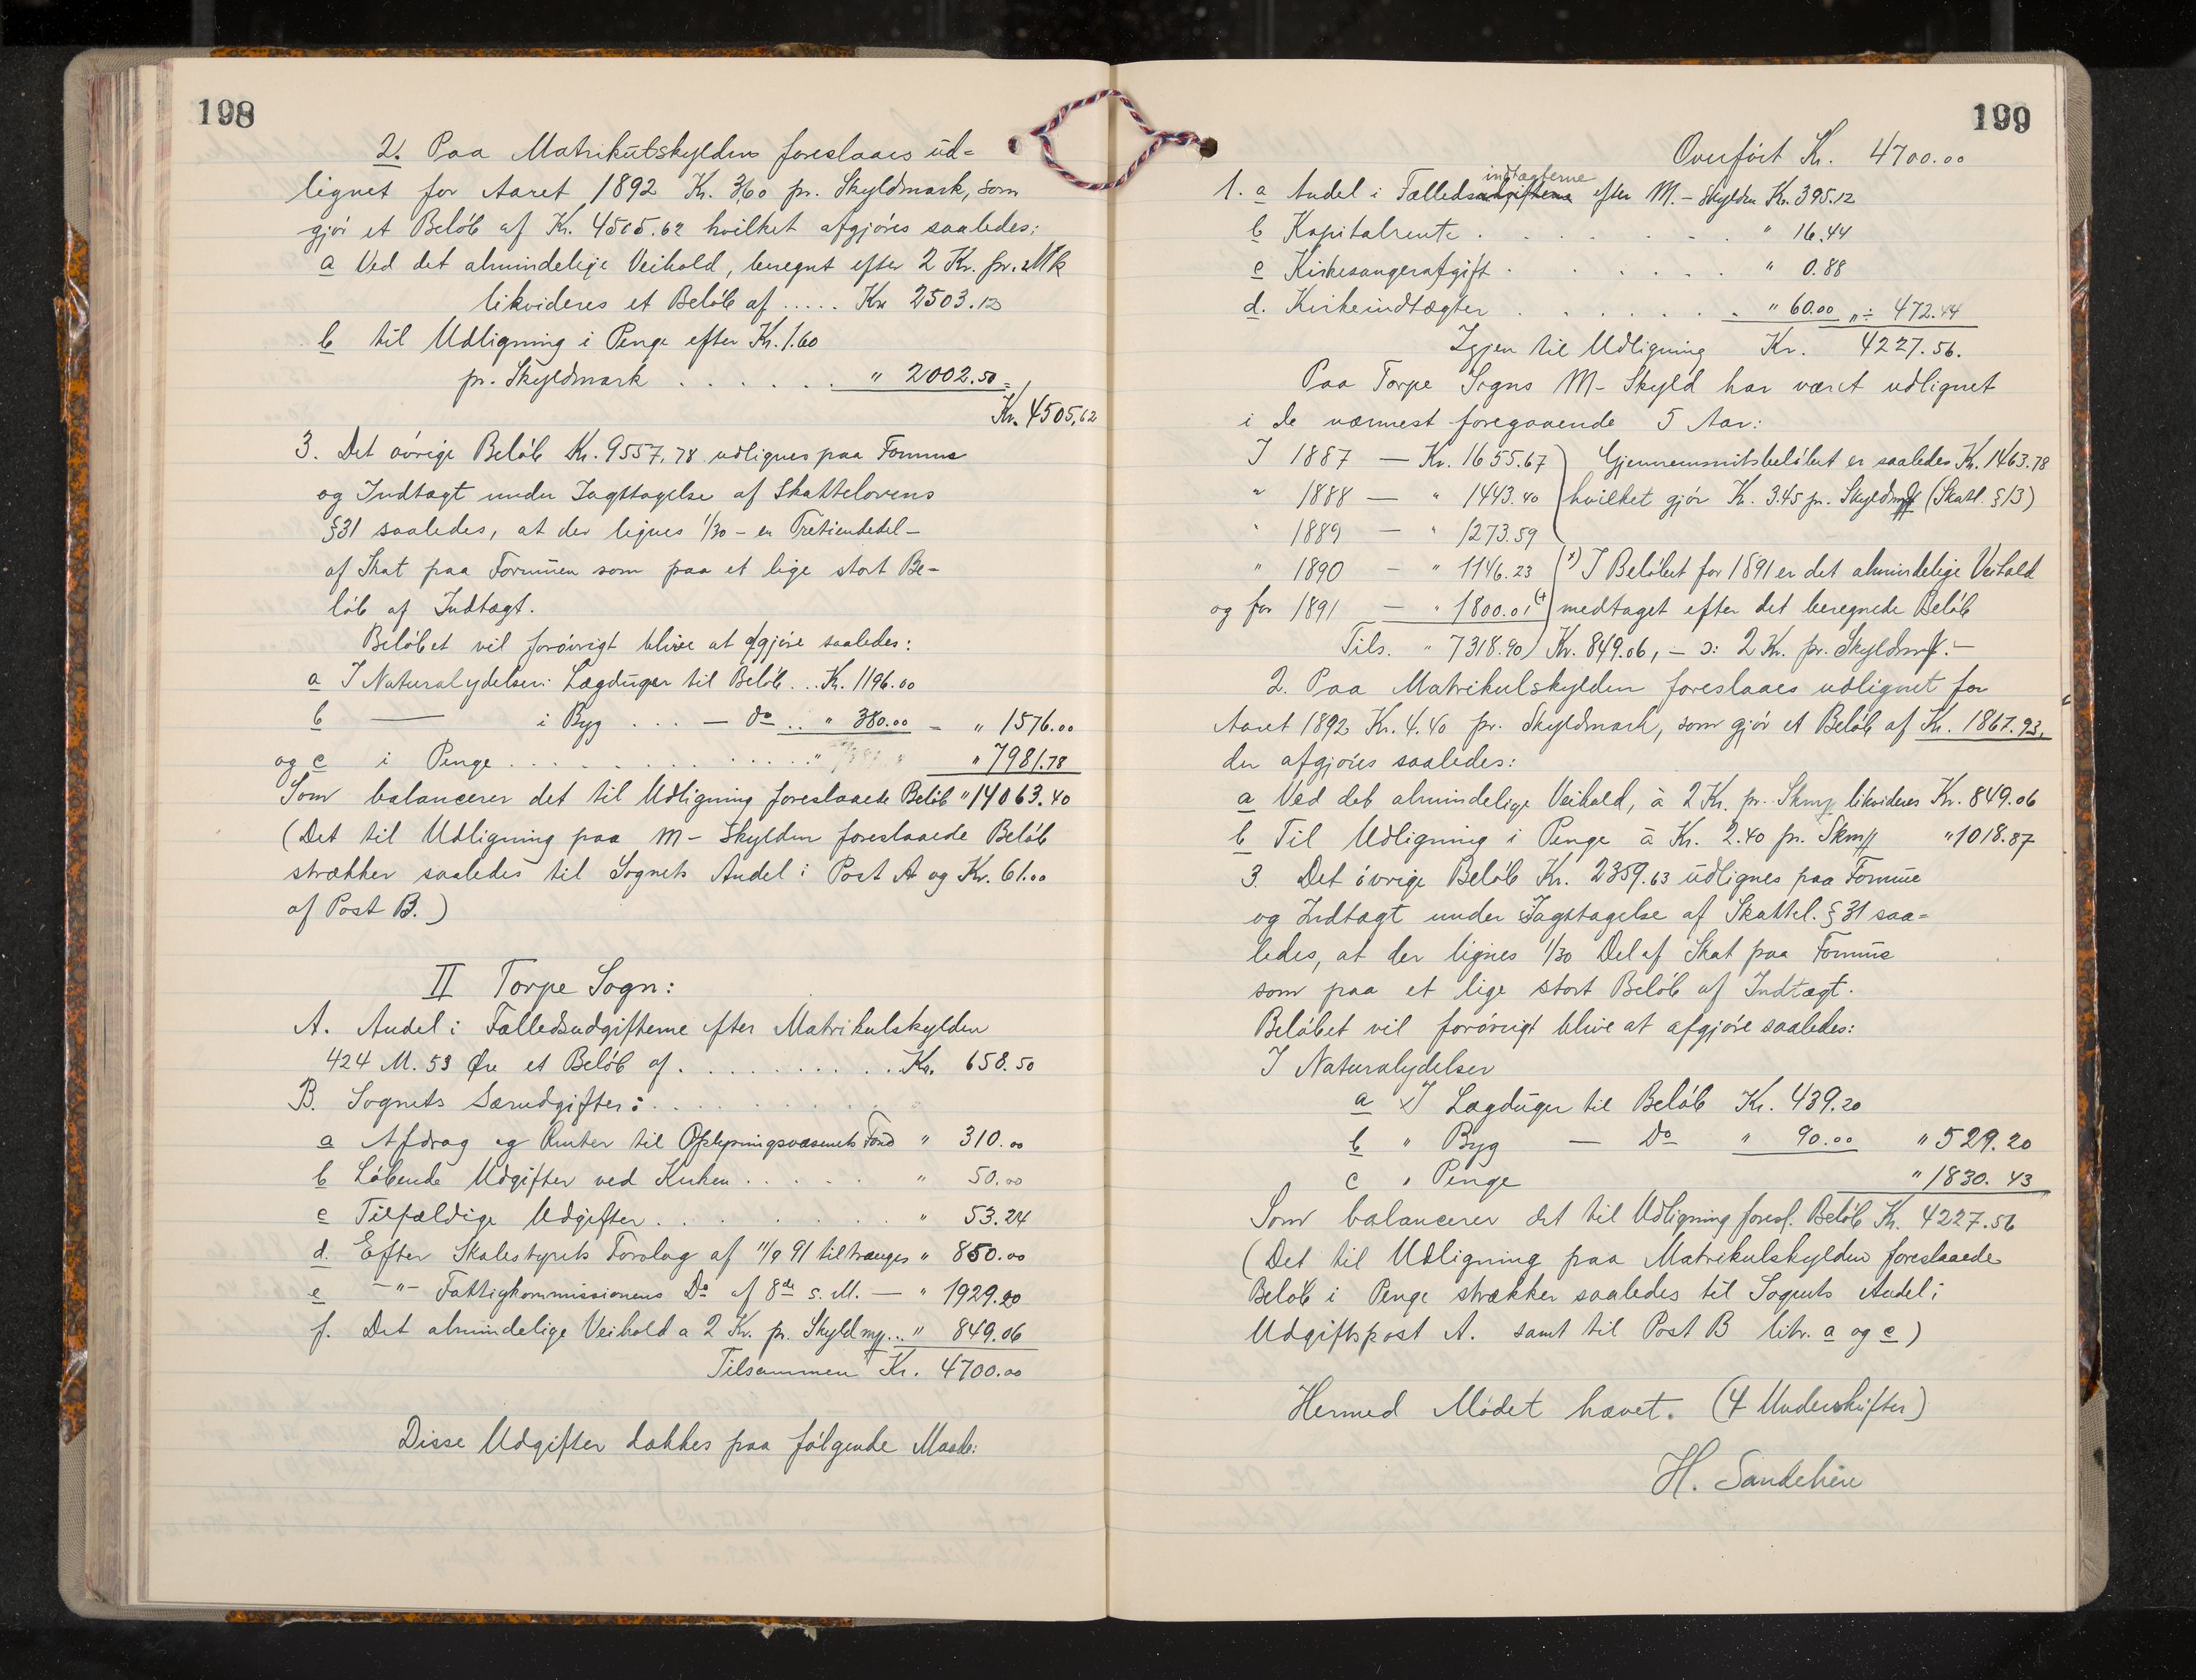 198
2. Paa Matrikulskylden foreslaaes ud-
lignet for Aaret 1892 Kr. 3,60 pr. Skyldmark, som
gjør et Beløb af Kr. 4505.62 hvilket afgjøres saaledes:
a Ved det almindelige Veihold, beregnt efter 2 Kr. pr. Mk
likvideres et Beløb af ..... Kr 2503.12
b til Udligning i Penge efter Kr. 1.60
pr. Skyldmark . . . . . . " 2002.50 =
Kr. 4505,62
3. Det øvrige Beløb Kr. 9557,78 udlignes paa Formue
og Indtægt under Iagttagelse af Skattelovens
§31 saaledes, at der lignes 1/30 - en Tretiendedel -
af Skat paa Formuen som paa et lige stort Be-
løb af Indtægt.
Beløbet vil forøvrigt blive at afgjøre saaledes:
a I Naturalydelser: Lægduger til Beløb ... Kr. 1196.00
b — i Byg . . . — do .. " 380.00 = " 1576.00
og c i Penge . . . . . . . . . . . . . " 7981.78
Som balancerer det til Udligning foreslaaede Beløb " 14063.40
(Det til Udligning paa M- Skylden foreslaaede Beløb
strækker saaledes til Sognets Andel i Post A og Kr. 61.00
af Post B.)
II Torpe Sogn:
A. Andel i Fælledsudgifterne efter Matrikulskylden
424 M. 53 Øre et Beløb af . . . . . . . . . . Kr. 658.50
B. Sognets Særudgifter: . . . . . . . .
a Afdrag og Renter til Oplysningsvæsenets Fond " 310.00
b Løbende Udgifter ved Kirken . . . . . " 50.00
c Tilfældige Udgifter . . . . . . . . " 53.24
d. Efter Skolestyrets Forslag af 11/9 91 tiltrænges " 850.00
e -"- Fattigkommissionens Do af 8de s. M. — " 1929.20
f. Det almindelige Veihold a 2 Kr. pr. Skyldmk... " 849.06
Tilsammen Kr. 4700.00
Disse Udgifter dækkes paa følgende Maade:
199
Overført Kr. 4700.00
indtægterne
1. a Andel i Fælledsudgifterne efter M.- Skylden Kr. 395.12
b Kapitalrente . . . . . . . " 16.44
c Kirkesangerafgift . . . . . . " 0.88
d. Kirkeindtægter . . . . . . " 60.00 " ÷ 472.44
Igjen til Udligning Kr. 4227.56.
Paa Torpe Sogns M- Skyld har været udlignet
i de nærmest foregaaende 5 Aar:
I 1887 — Kr. 1655.67 Gjennemsnitsbeløbet er saaledes Kr. 1463.78
" 1888 — " 1443.40 hvilket gjør Kr. 3.45 pr. Skyldmk (Skattl. §13)
" 1889 — " 1273.59
" 1890 — " 1146.23 (+) I Beløbet for 1891 er det almindelige Veihold
og for 1891 — " 1800.01 (+ medtaget efter det beregnede Beløb
Tils. " 7318.90 Kr. 849.06, - ɔ: 2 Kr. pr. Skyldmk.-
2. Paa Matrikulskylden foreslaaes udlignet for
Aaret 1892 Kr. 4.40 pr. Skyldmark, som gjør et Beløb af Kr. 1867.93,
der afgjøres saaledes:
a Ved det almindelige Veihold, à 2 Kr. pr. Skmk likvideres Kr. 849.06
b Til Udligning i Penge à Kr. 2.40 pr. Skmk " 1018.87
3. Det øvrige Beløb Kr. 2359.63 udlignes paa Formue
og Indtægt under Iagttagelse af Skattel. §31 saa-
ledes, at der lignes 1/30 Del af Skat paa Formue
som paa et lige stort Beløb af Indtægt.
Beløbet vil forøvrigt blive at afgjøre saaledes:
I Naturalydelser
a I Lægduger til Beløb Kr. 439.20
b " Byg — Do " 90.00 " 529.20
c " Penge " 1830.43
Som balancerer det til Udligning foresl. Beløb Kr. 4227.56
(Det til Udligning paa Matrikulskylden foreslaaede
Beløb i Penge strækker saaledes til Sognets Andel i
Udgiftspost A. samt til Post B litr. a og c)
Hermed Mødet hævet. (4 Underskrifter)
H. Sandehien